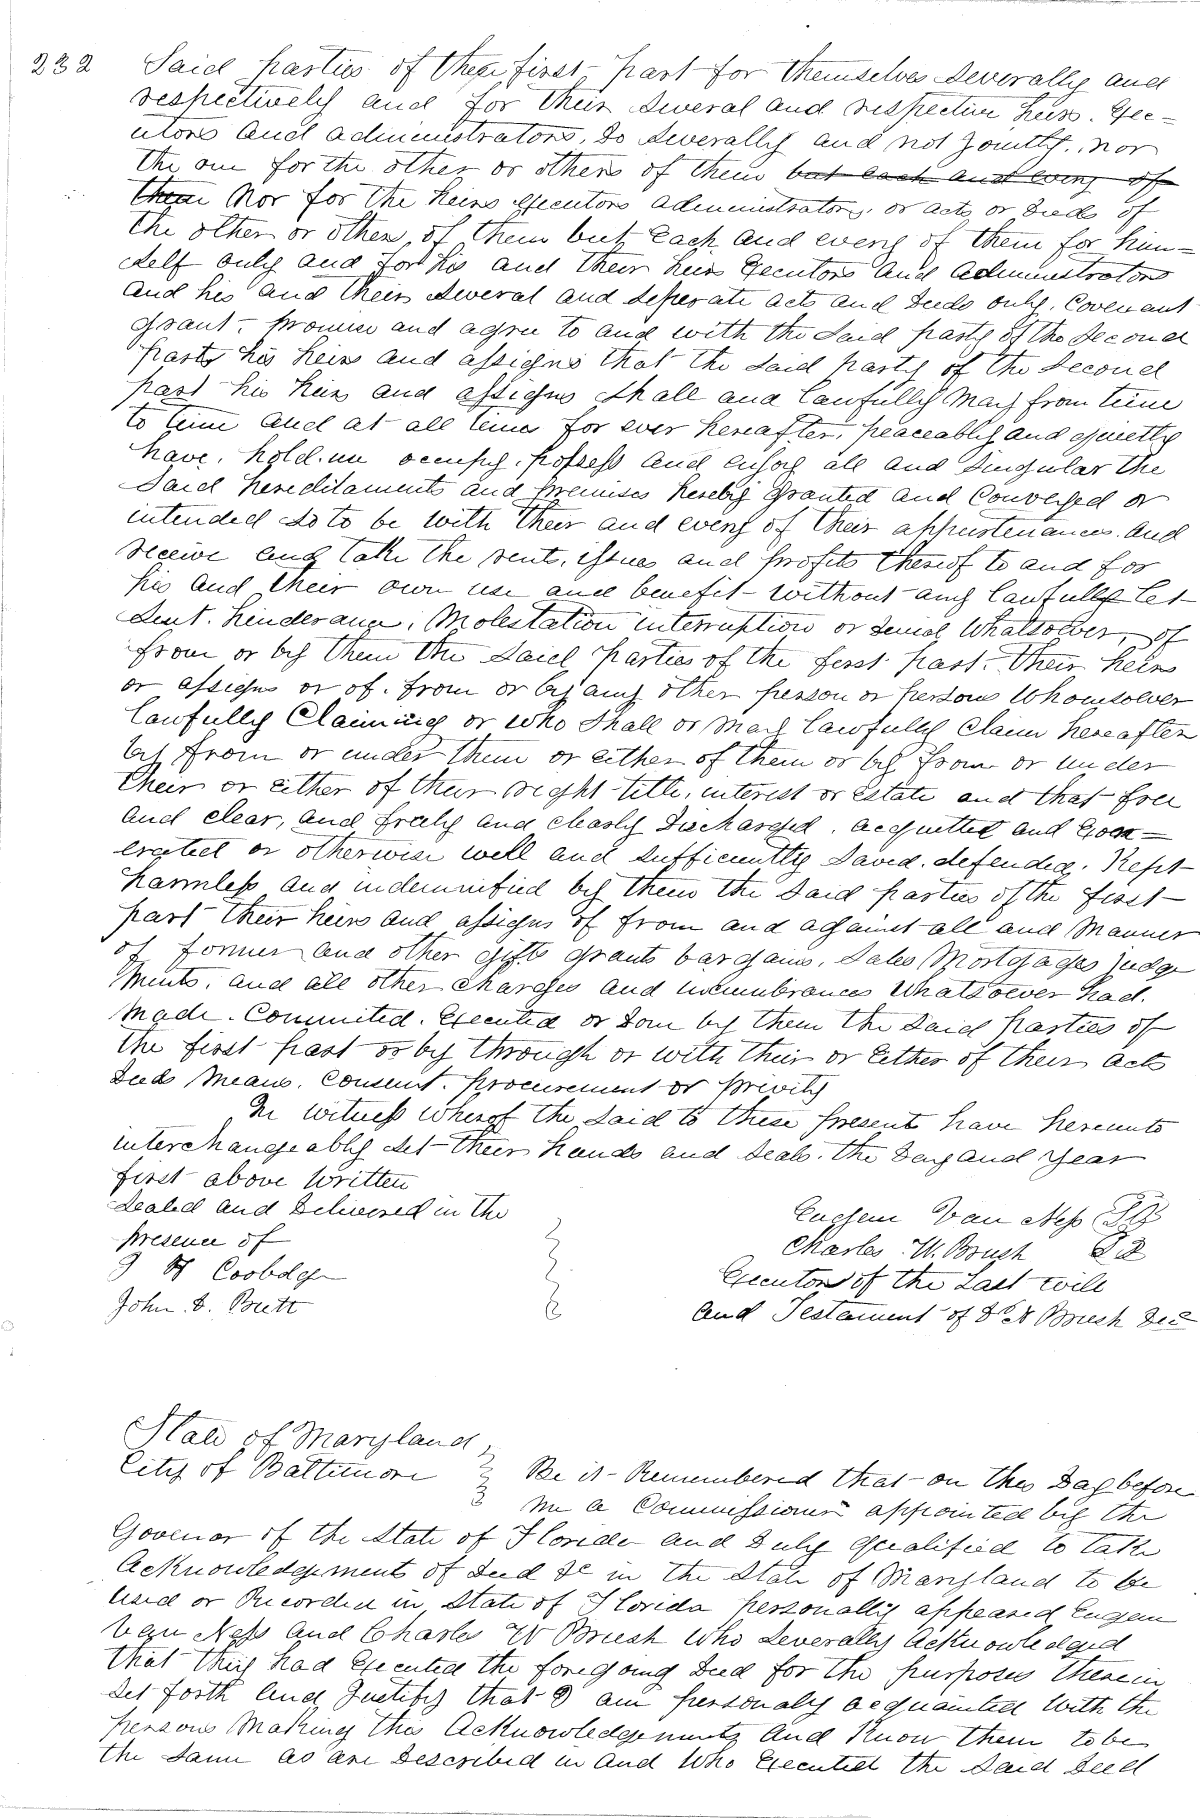 232 Said parties of the first part for themselves Severally and
respectively and for their Several and respective heirs. Exec=
utors and administrators, do Severally and not Jointly. nor
the one for the other or others of them but each and every of
them Nor for the heirs executors administrators, or acts or Deeds of
the other or others of them but Each and every of them for him=
self only and for his and their heirs Executors and Administrators
and his and their Several and Seperate acts and Deeds only. Covenant
grant. promise and agree to and with the Said party of the Second
party his heirs and assigns that the Said party of the Second
part his heirs and assigns Shall and lawfully May from time
to time and at all times for ever hereafter, peaceably and quietly
have, hold. use occupy. possess and enjoy all and Singular the
Said hereditaments and premises hereby granted and Conveyed or
intended So to be with their and every of their appurtenances. and
receive and take the rents, issues and profits thereof to and for
his and their own use and benefit without any lawfully let
Suit. hinderance, Molestation interruption or denial Whatsoever, of
from or by them the Said parties of the first part. their heirs
or assigns or of. from or by any other person or persons Whomsoever
lawfully Claiming or who Shall or May lawfully Claim hereafter
by from or under them or either of them or by from or under
their or either of their right title, interest or Estate and that free
and clear, and freely and clearly Discharged. acquitted and Exon=
erated or otherwise well and Sufficiently Saved. defended. Kept
harmless and indemnified by them the Said parties of the first
part their heirs and assigns of from and against all and Manner
of former and other gifts grants bargains. Sales Mortgages Judge
ments, and all other charges and incumbrances Whatsoever had.
Made. Commited. Executed or Done by them the Said parties of
the first part or by through or with their or Either of their acts
Deeds Means. Consent. procurement or privity
In witness whereof the Said to these present have hereunto
interchangeably Set their hands and Seals. the Day and year
first above Written
Sealed and Delivered in the
presence of
J H Coobdge
John. S. Butt
Eugene Van Ness
Charles W. Brush
Executors of the Last will
and Testament of Brush Decd
State of Maryland
City of Baltimore Be it Remembered that on this Day before
me a Commissioner appointed by the
Govenor of the State of Florida and Duly qualified to take
Acknowledgements of Deed &c in the State of Maryland to be
used or Recorded in State of Florida personally appeared Eugene
Van Ness and Charles W Brush Who Severally Acknowledged
that they had Executed the foregoing Deed for the purposes therein
Set forth and Justify that I am personaly acquainted with the
persons Making this Acknowledgements and Know them to be
the Same as are Described in and Who Executed the Said Deed